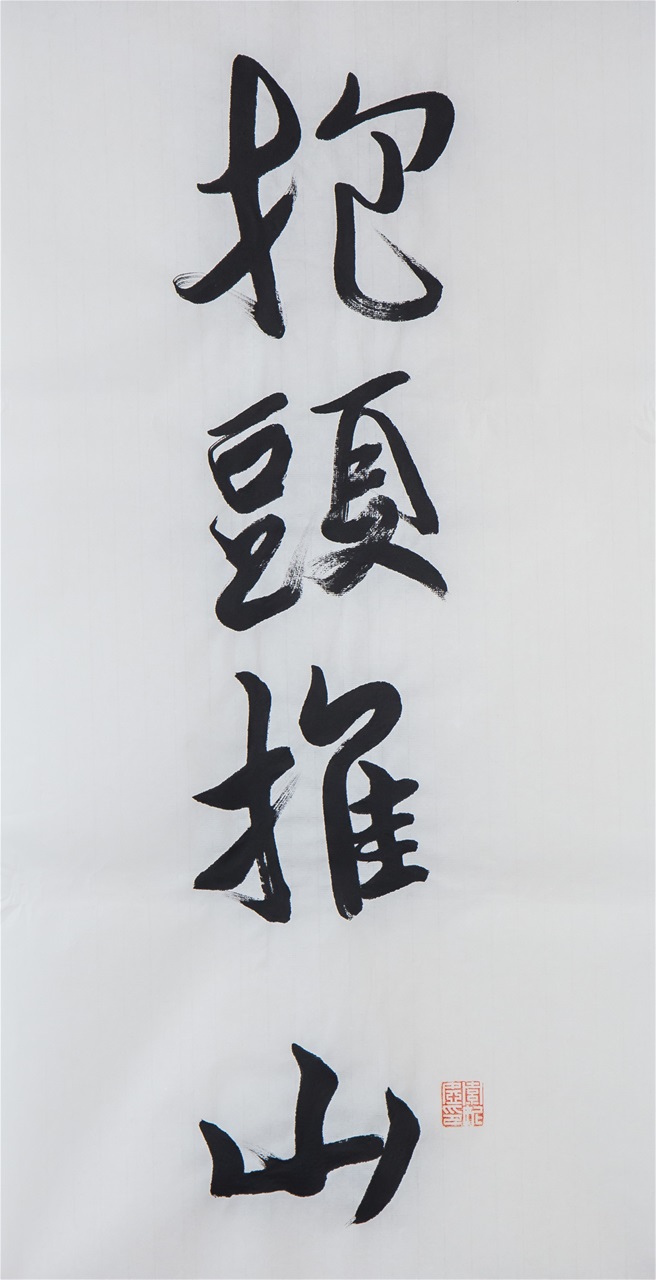 抱頭推山